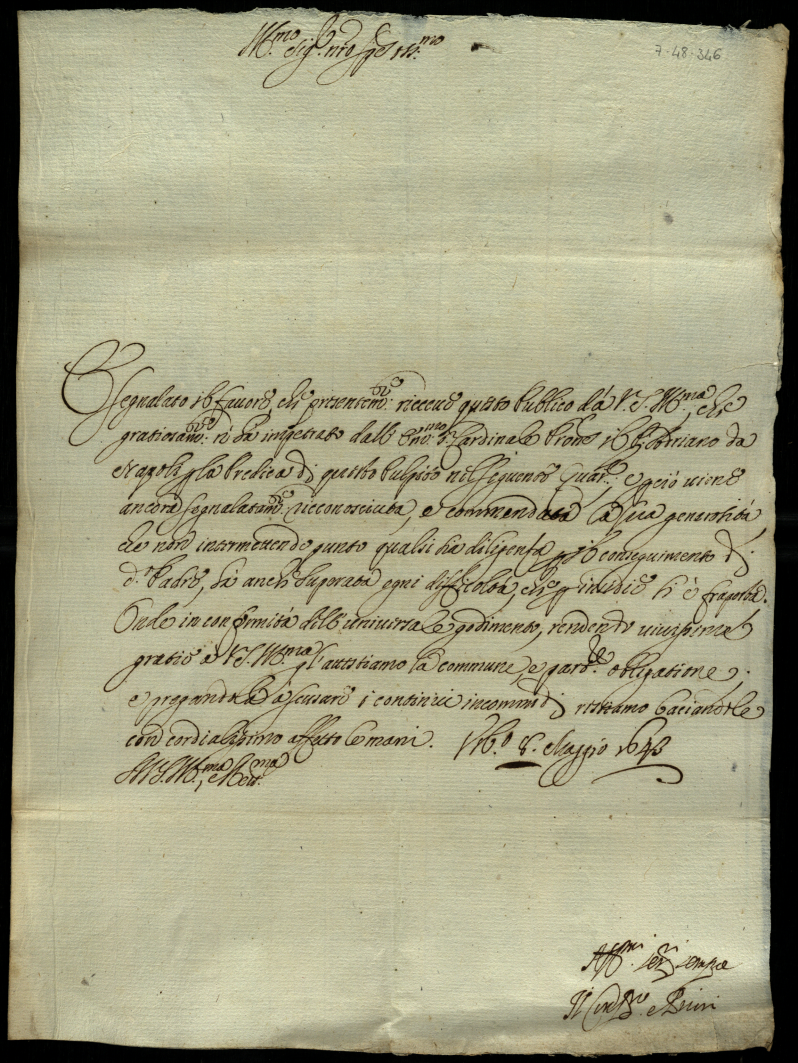 Ill.mo Sig.r nro oss.mo
7-48-346
È segnalato il favore, che presentem.te riceve questo Publico da V.S. Ill.ma, che
gratiosam.te ci ha impetrato dall' Em.mo Cardinale il P. Adriano da
Napoli p la Predica di questo Pulpito nel seguente Quar.le, e p ciò viene
ancora segnalatam.te riconosciuta, e commendata la sua generosità
che non intermettendo punto qualsisia diligenza p il conseguimento di
d.o Padre, hà anche superata ogni difficoltà, che p invidia si è frapposta.
Onde in conformità dell' universale godimento, rendendo vivissime
gratie a V.S. Ill.ma l'autitiamo la commune, e par.re obligatione,
e pregandola à scusare i continui incommodi restiamo baciandole
con cordialissimo affetto le mani. 8. Maggio 1648
Di V.S. Ill.ma, e Rev.ma
Aff.mi ser.ri sempre
Il Con.re e Priori